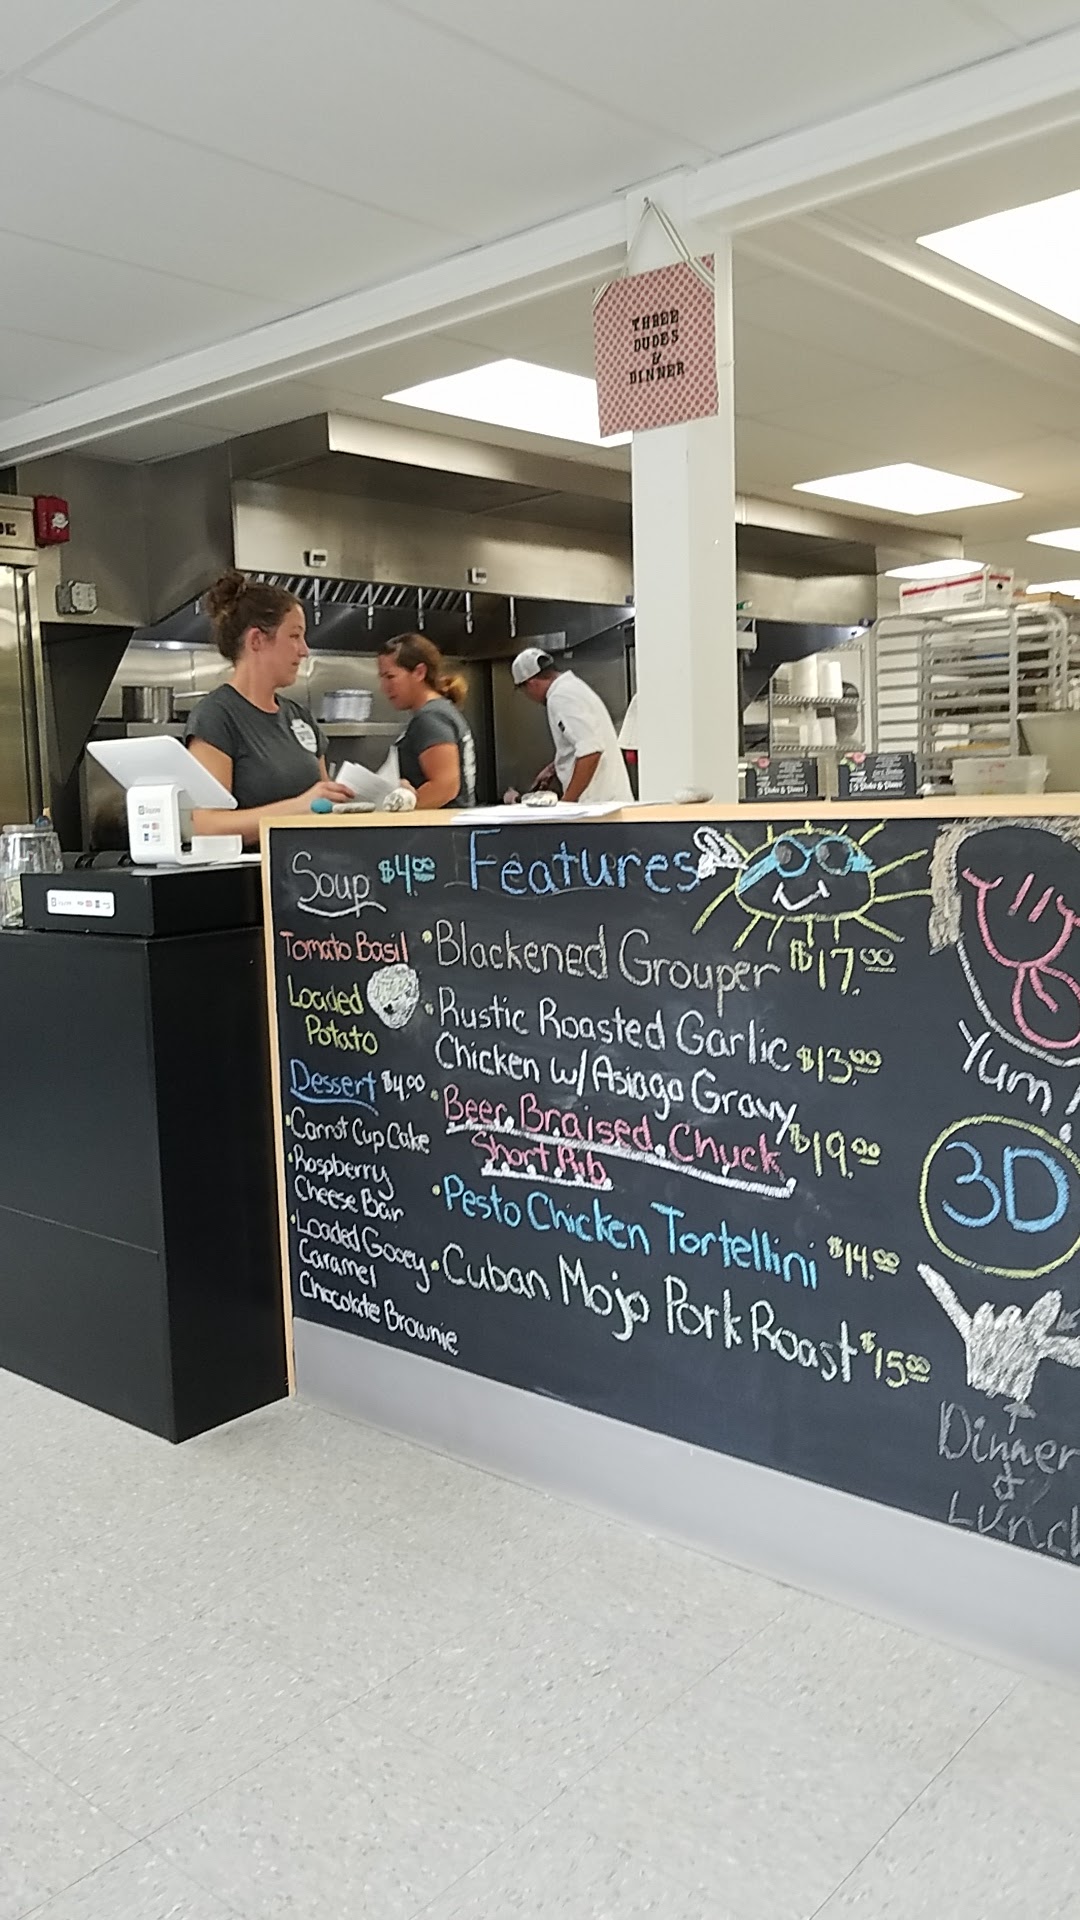 THREE
DUDES
&
DINNER
Soup $4.00
Tomato Basil
Loaded
Potato
Dessert $4.00
•Carrot Cup Cake
•Raspberry
Cheese Bar
•Loaded Gooey
Caramel
Chocolate Brownie
Features
•Blackened Grouper $17.00
•Rustic Roasted Garlic
Chicken w/Asiago Gravy $13.00
•Beer Braised Chuck
Short Rib $19.00
•Pesto Chicken Tortellini $14.00
•Cuban Mojo Pork Roast $15.00
Yum!
3D
Dinner
&
Lunch